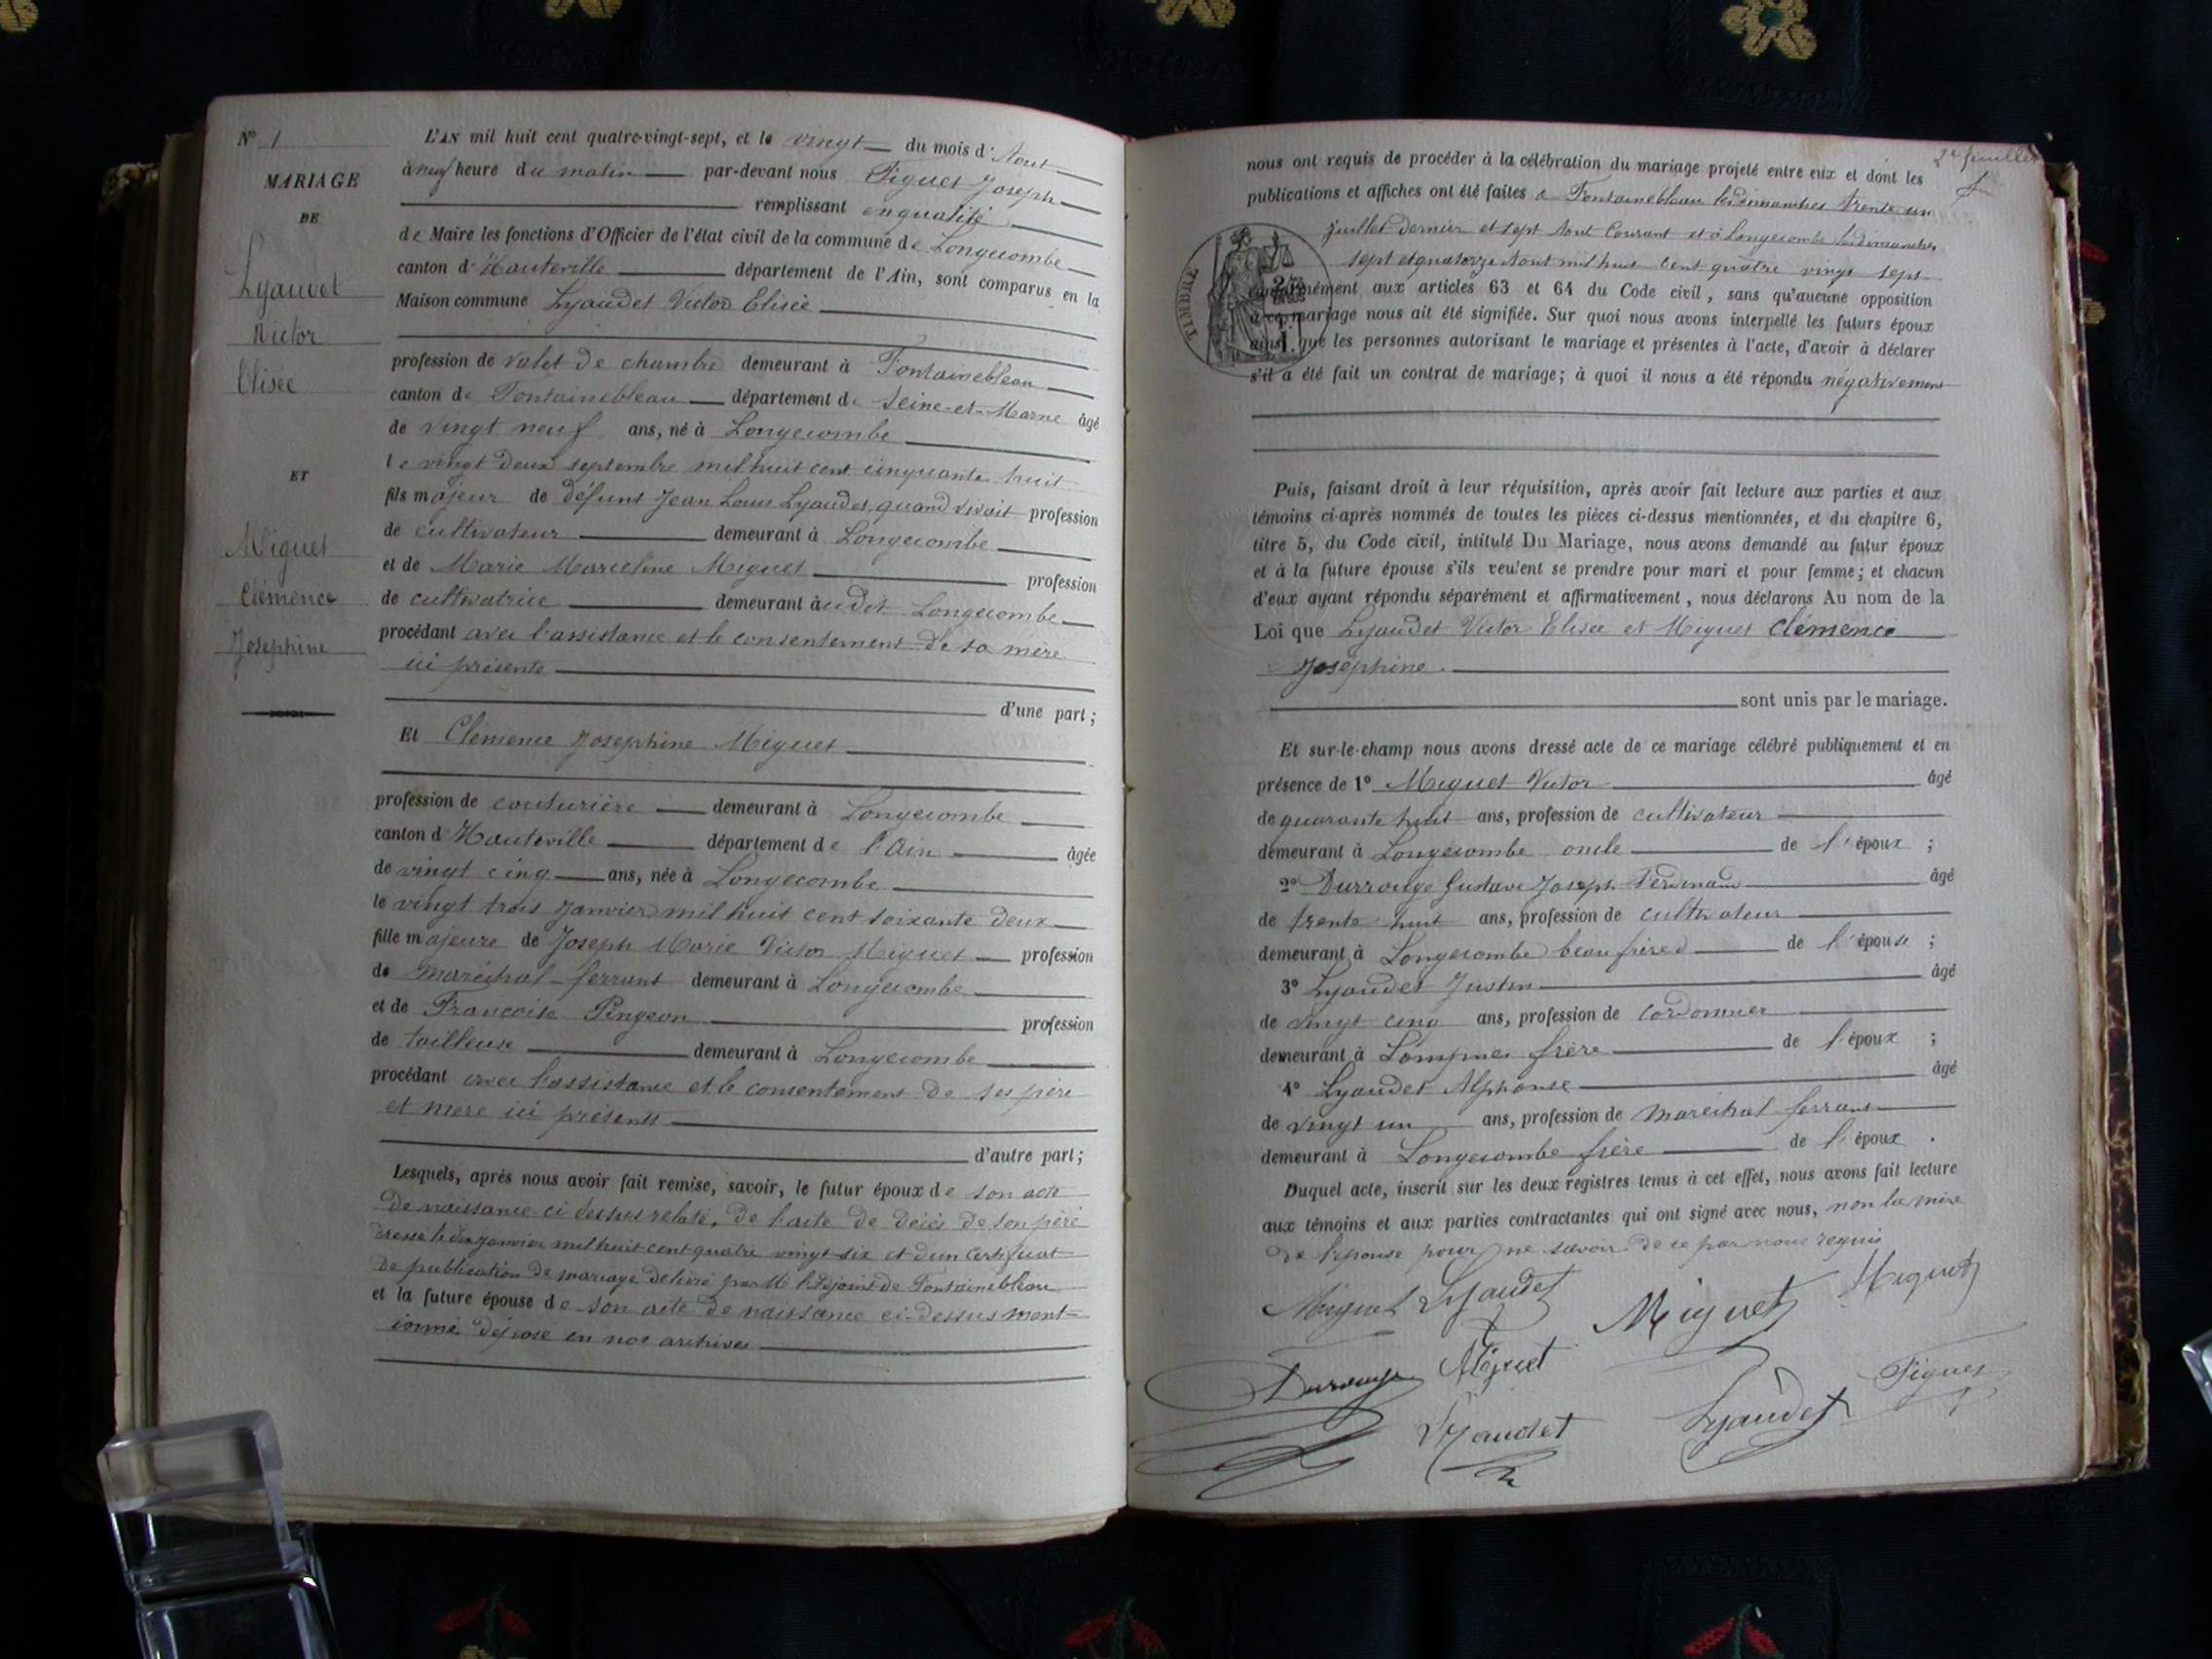 N° 1
MARIAGE
DE
Lyauvet
Victor
Elisée
ET
Miguet
Clémence
Josephine
L'AN mil huit cent quatre-vingt-sept, et le vingt du mois d'Aout
à neuf heure du matin par-devant nous Figuet Joseph
remplissant en qualité
de Maire les fonctions d'Officier de l'état civil de la commune de Longecombe
canton d'Hauteville département de l'Ain, sont comparus en la
Maison commune Lyaudet Victor Elisée
profession de valet de chambre demeurant à Fontainebleau
canton de Fontainebleau département de Seine-et-Marne âgé
de vingt neuf ans, né à Longecombe
le vingt deux septembre mil huit cent cinquante huit
fils majeur de défunt Jean Louis Lyaudet, quand vivait profession
de cultivateur demeurant à Longecombe
et de Marie Marceline Miguet profession
de cultivatrice demeurant à udit Longecombe
procédant avec l'assistance et le consentement de sa mère
ici présente
d'une part;
Et Clémence Josephine Miguet
profession de couturière demeurant à Longecombe
canton d'Hauteville département de l'Ain âgée
de vingt cinq ans, née à Longecombe
le vingt trois Janvier mil huit cent soixante deux
fille majeure de Joseph Marie Victor Miguet profession
de maréchal-ferrant demeurant à Longecombe
et de Francoise Pingeon profession
de tailleuse demeurant à Longecombe
procédant avec l'assistance et le consentement de ses père
et mère ici présents
d'autre part;
Lesquels, après nous avoir fait remise, savoir, le futur époux de son acte
de naissance ci dessus relaté, de l'acte de décès de son père
dressé le dix janvier mil huit cent quatre vingt six et d'un certificat
de publication de mariage délivré par M. l'Adjoint de Fontainebleau
et la future épouse de son acte de naissance ci-dessus ment-
ionné déposé en nos archives
2e feuillet
nous ont requis de procéder à la célébration du mariage projeté entre eux et dont les
publications et affiches ont été faites à Fontainebleau les dimanches trente un
juillet dernier et sept Aout Courant et à Longecombe les dimanches
sept et quatorze Aout mil huit cent quatre vingt sept
TIMBRE
conformément aux articles 63 et 64 du Code civil, sans qu'aucune opposition
à ce mariage nous ait été signifiée. Sur quoi nous avons interpellé les futurs époux
ainsi que les personnes autorisant le mariage et présentes à l'acte, d'avoir à déclarer
s'il a été fait un contrat de mariage; à quoi il nous a été répondu négativement
Puis, faisant droit à leur réquisition, après avoir fait lecture aux parties et aux
témoins ci-après nommés de toutes les pièces ci-dessus mentionnées, et du chapitre 6,
titre 5, du Code civil, intitulé Du Mariage, nous avons demandé au futur époux
et à la future épouse s'ils veulent se prendre pour mari et pour femme; et chacun
d'eux ayant répondu séparément et affirmativement, nous déclarons Au nom de la
Loi que Lyaudet Victor Elisée et Miguet Clémence
Josephine.
sont unis par le mariage.
Et sur-le-champ nous avons dressé acte de ce mariage célébré publiquement et en
présence de 1° Miguet Victor âgé
de quarante huit ans, profession de cultivateur
demeurant à Longecombe oncle de l'époux ;
2° Durrouge Gustave Joseph Ferdinand âgé
de trente huit ans, profession de cultivateur
demeurant à Longecombe beau frère de l'épouse ;
3° Lyaudet Justin âgé
de vingt cinq ans, profession de cordonnier
demeurant à Lompnes frère de l'époux ;
4° Lyaudet Alphonse âgé
de vingt un ans, profession de maréchal ferrant
demeurant à Longecombe frère de l'époux.
Duquel acte, inscrit sur les deux registres tenus à cet effet, nous avons fait lecture
aux témoins et aux parties contractantes qui ont signé avec nous, non la mère
de l'épouse pour ne savoir de ce par nous requis
Miguet Lyaudet Miguet Miguet
Durrouge Miguet Figuet
Lyaudet Lyaudet